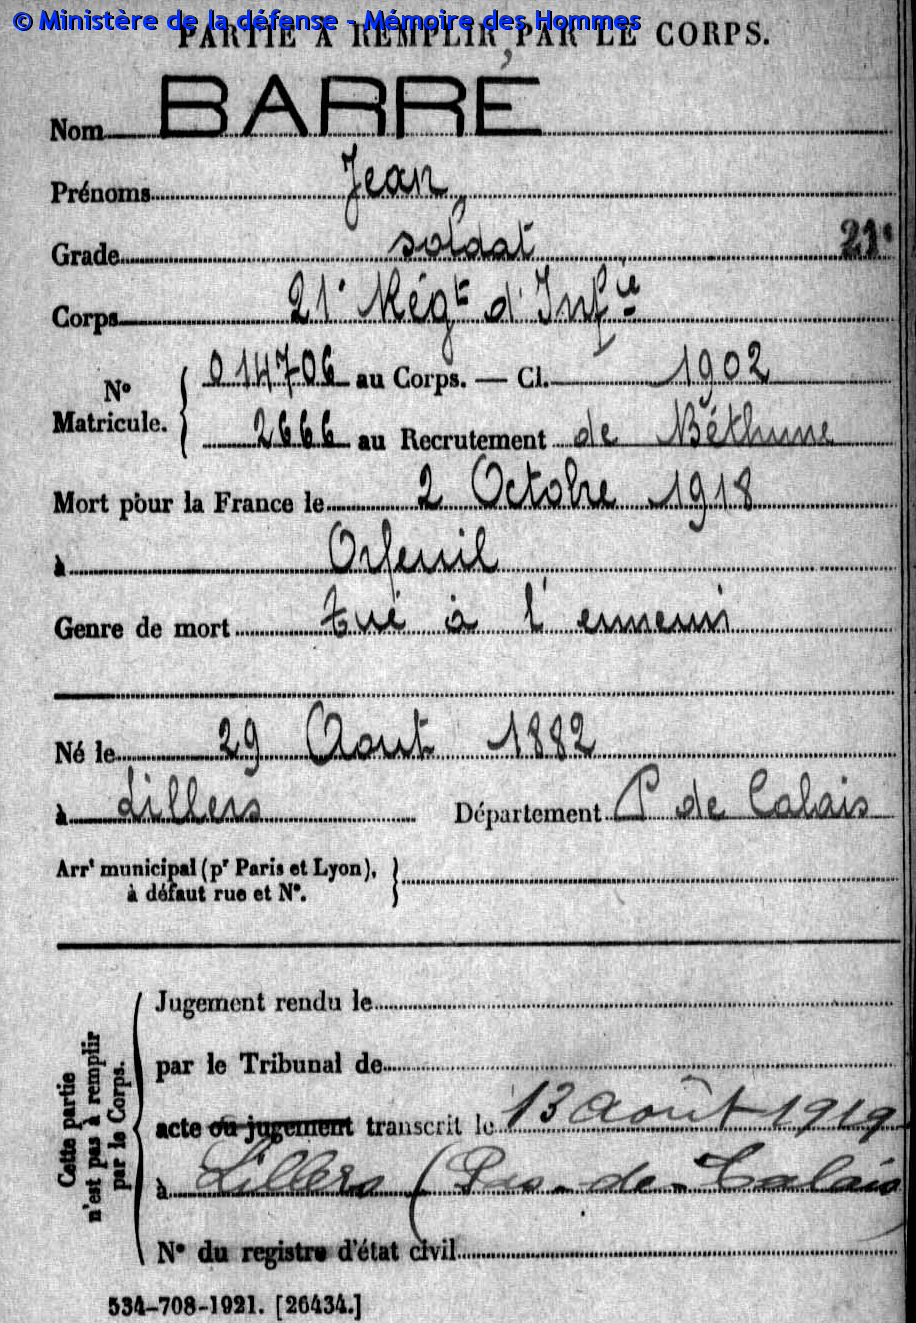 © Ministère de la défense - Mémoire des Hommes
PARTIE À REMPLIR PAR LE CORPS.
Nom BARRÉ
Prénoms Jean
Grade soldat 21e
Corps 21e Régt d'Infie
No Matricule. 014706 au Corps. — Cl. 1902
2666 au Recrutement de Béthune
Mort pour la France le 2 Octobre 1918
à Orfeuil
Genre de mort tué à l'ennemi
Né le 29 Aout 1882
à Lillers Département P de Calais
Arrt municipal (pr Paris et Lyon),
à défaut rue et No.
Cette partie
n'est pas à remplir
par le Corps.
Jugement rendu le
par le Tribunal de
acte ou jugement transcrit le 13 août 1919
à Lillers (Pas-de-Calais)
No du registre d'état civil
534-708-1921. [26434.]